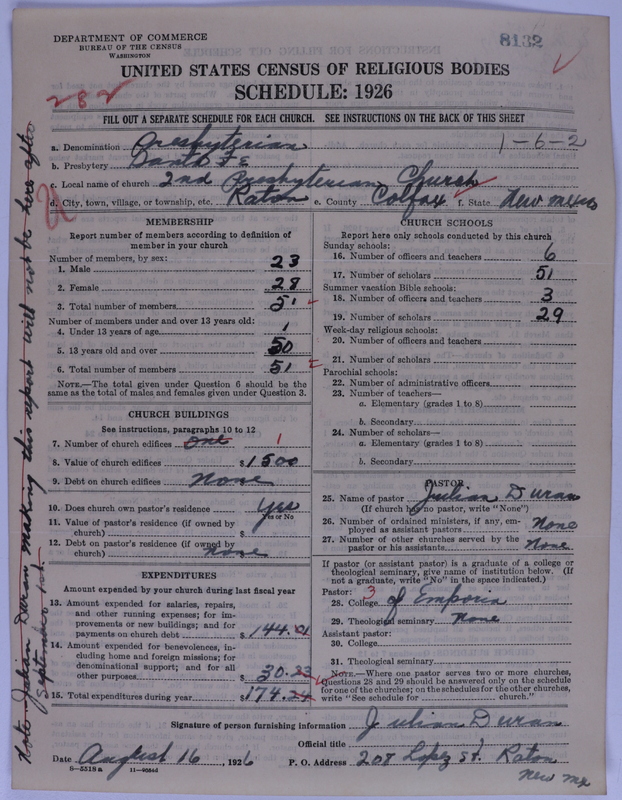 DEPARTMENT OF COMMERCE
BUREAU OF THE CENSUS
WASHINGTON
8132
UNITED STATES CENSUS OF RELIGIOUS BODIES
SCHEDULE: 1926
282
FILL OUT A SEPARATE SCHEDULE FOR EACH CHURCH. SEE INSTRUCTIONS ON THE BACK OF THIS SHEET
a. Denomination Presbyterian 1-6-2
b. Presbytery Santa Fe
c. Local name of church 2nd Presbyterian Church
d. City, town, village, or township, etc. Raton e. County Colfax f. State New Mexico
MEMBERSHIP
Report number of members according to definition of
member in your church
Number of members, by sex:
1. Male 23
2. Female 28
3. Total number of members 51
Number of members under and over 13 years old:
4. Under 13 years of age 1
5. 13 years old and over 50
6. Total number of members 51
NOTE.—The total given under Question 6 should be the
same as the total of males and females given under Question 3.
CHURCH BUILDINGS
See instructions, paragraphs 10 to 12
7. Number of church edifices one 1
8. Value of church edifices $1500
9. Debt on church edifices None
10. Does church own pastor's residence Yes
Yes or No
11. Value of pastor's residence (if owned by
church) $
12. Debt on pastor's residence (if owned by
church) none
EXPENDITURES
Amount expended by your church during last fiscal year
13. Amount expended for salaries, repairs,
and other running expenses; for im-
provements or new buildings; and for
payments on church debt $144.01
14. Amount expended for benevolences, in-
cluding home and foreign missions; for
denominational support; and for all
other purposes $30.23
15. Total expenditures during year $174.24
CHURCH SCHOOLS
Report here only schools conducted by this church
Sunday schools:
16. Number of officers and teachers 6
17. Number of scholars 51
Summer vacation Bible schools:
18. Number of officers and teachers 3
19. Number of scholars 29
Week-day religious schools:
20. Number of officers and teachers
21. Number of scholars
Parochial schools:
22. Number of administrative officers
23. Number of teachers—
a. Elementary (grades 1 to 8)
b. Secondary
24. Number of scholars—
a. Elementary (grades 1 to 8)
b. Secondary
PASTOR
25. Name of pastor Julian Duran
(If church has no pastor, write "None")
26. Number of ordained ministers, if any, em-
ployed as assistant pastors None
27. Number of other churches served by the
pastor or his assistants None
If pastor (or assistant pastor) is a graduate of a college or
theological seminary, give name of institution below. (If
not a graduate, write "No" in the space indicated.)
Pastor: 3
28. College of Emporia
29. Theological seminary None
Assistant pastor:
30. College
31. Theological seminary
NOTE.—Where one pastor serves two or more churches,
Questions 28 and 29 should be answered only on the schedule
for one of the churches; on the schedules for the other churches,
write "See schedule for church."
Signature of person furnishing information Julian Duran
Official title
Date August 16, 1926 P. O. Address 208 Lopez St. Raton
New Mex
8—5518a 11—9864d
Note Julian Duran making this report will not be here after
September 1st.